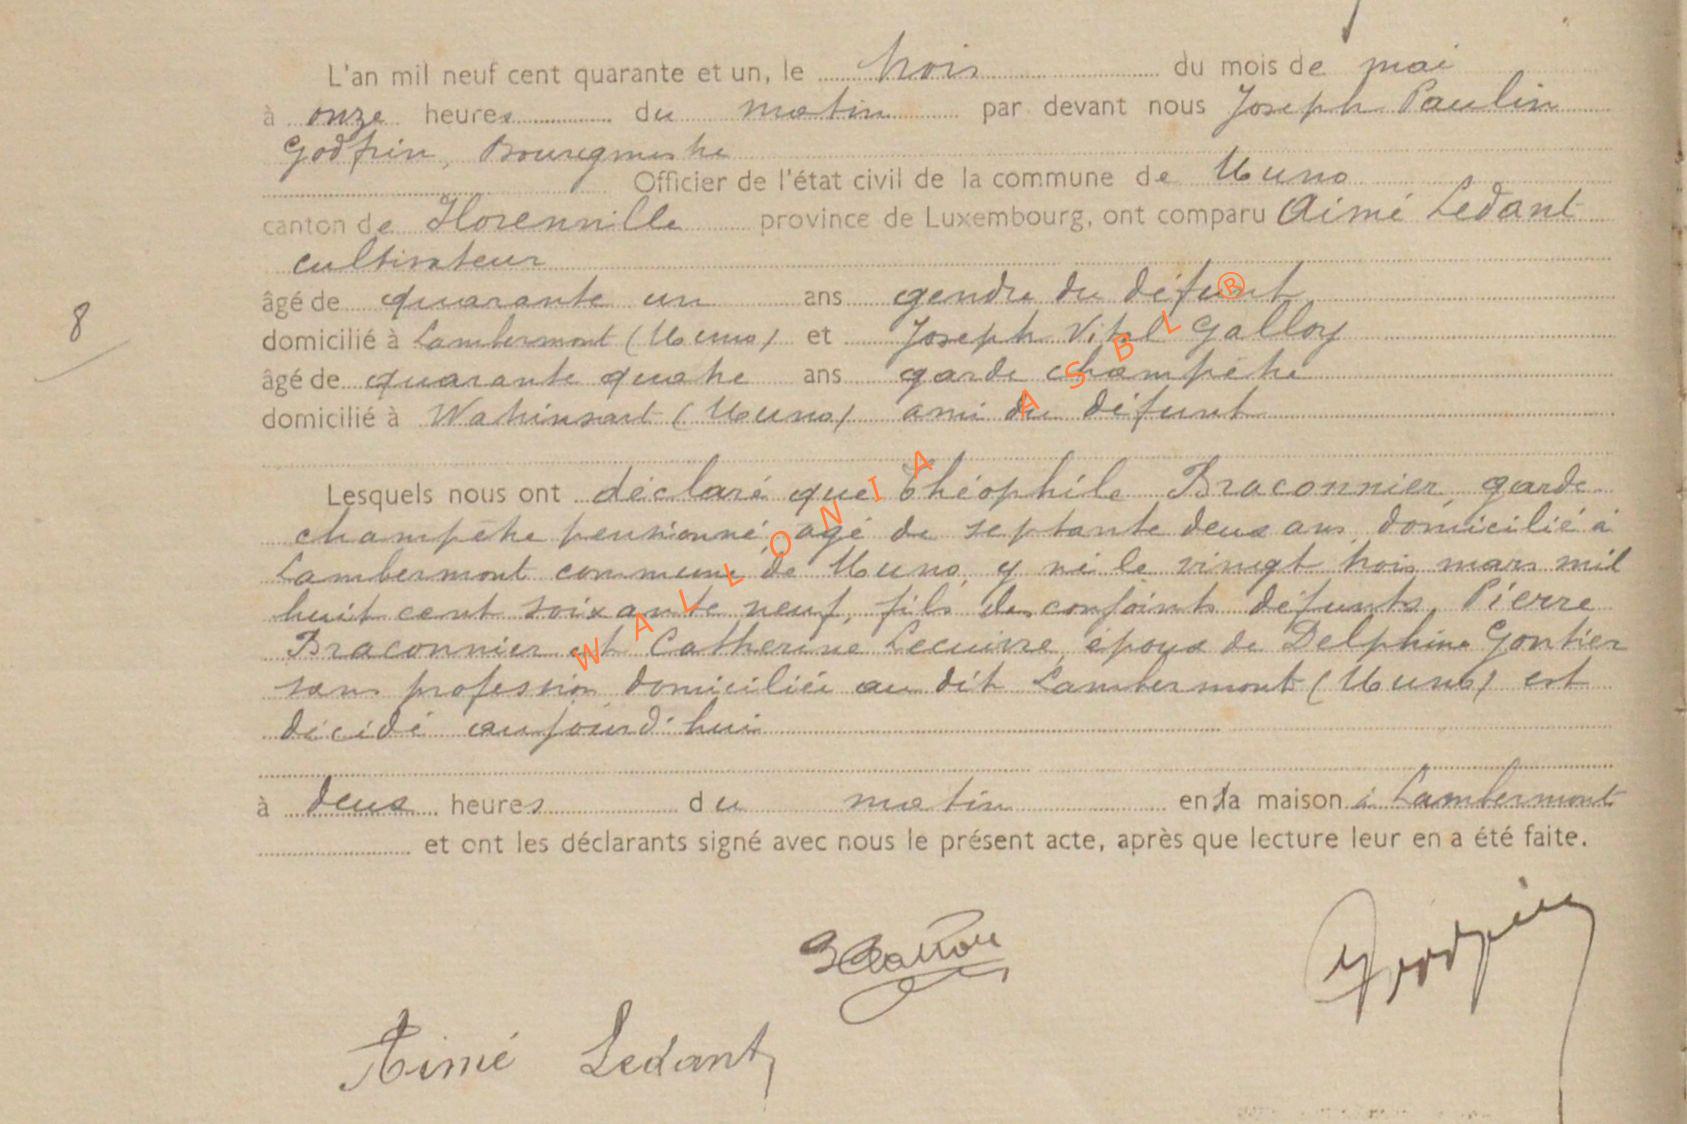 L'an mil neuf cent quarante et un, le trois du mois de mai
à onze heures du matin par devant nous Joseph Paulin
Godfrin, Bourgmestre
Officier de l'état civil de la commune de Muno
canton de Florenville province de Luxembourg, ont comparu Aimé Ledant
cultivateur
âgé de quarante un ans gendre du défunt
domicilié à Lambermont (Muno) et Joseph Vital Galloy
âgé de quarante quatre ans garde champêtre
domicilié à Watrinsart (Muno) ami du défunt
8
Lesquels nous ont déclaré que Théophile Braconnier, garde
champêtre pensionné, agé de septante deux ans domicilié à
Lambermont commune de Muno, y né le vingt trois mars mil
huit cent soixante neuf, fils des conjoints défunts, Pierre
Braconnier et Catherine Lecuivre, époux de Delphine Gontier
sans profession domiciliée au dit Lambermont (Muno) est
décédé aujourd'hui
à deux heures du matin en la maison à Lambermont
et ont les déclarants signé avec nous le présent acte, après que lecture leur en a été faite.
Aimé Ledant
WALLONIA ASBL ®